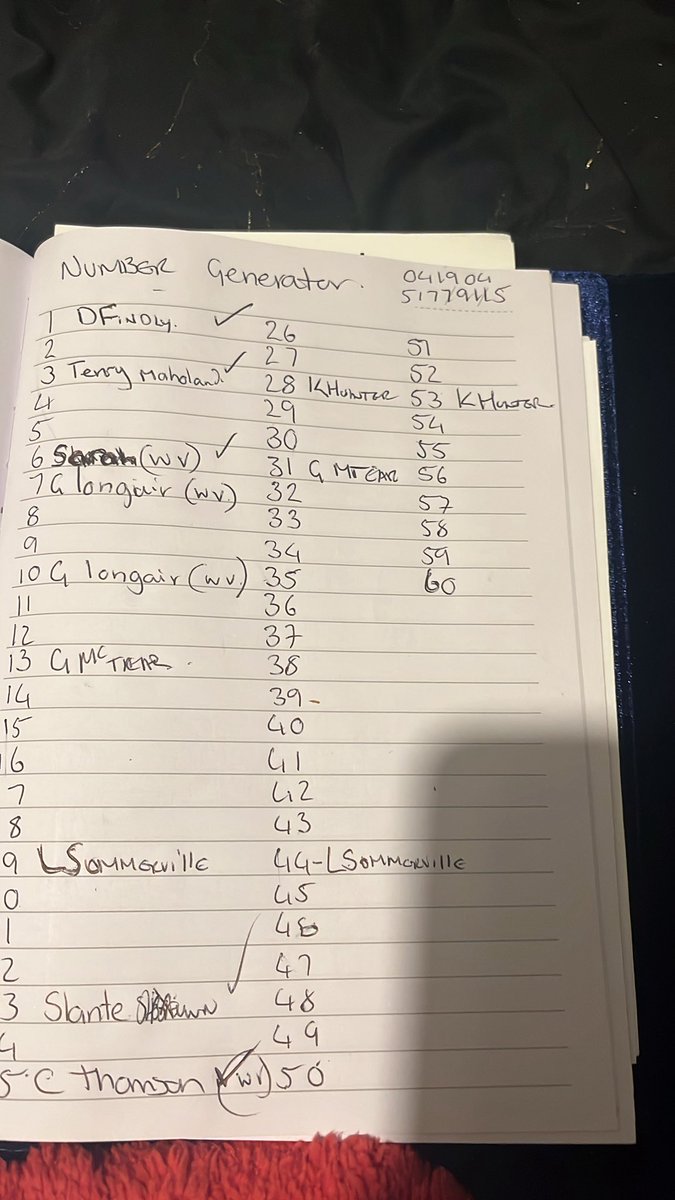 NUMBER Generator. 041904
51779115
1 DFINDLY. ✓ 26 51
2 27 52
3 Terry Maholand. ✓ 28 KHUNTER 53 KHUNTER
4 29 54
5 30 55
6 Sarah (WV) ✓ 31 G MTEAR 56
7 G longair (wv) 32 57
8 33 58
9 34 59
10 G longair (wv) 35 60
11 36
12 37
13 G McTEAR. 38
14 39-
15 40
16 41
7 42
8 43
9 LSOMMERVILLE 44-LSOMMERVILLE
0 45
1 46
2 47
3 Slante ✓ 48
4 49
5 C Thomson (wv) ✓ 50